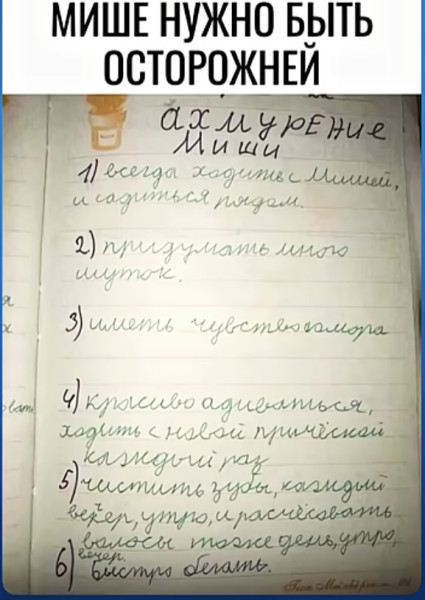 МИШЕ НУЖНО БЫТЬ
ОСТОРОЖНЕЙ
ахмурение
Миши
1) всегда ходить с Мишей,
и садиться рядом.
2) придумать много
шуток.
3) иметь чувство юмора
4) красиво адиваться,
ходить с новой причёской
каждый раз
5) чистить зубы, каждый
вечер, утро, и расчёсовать
волосы тоже день, утро,
вечер.
6) быстро бегать.